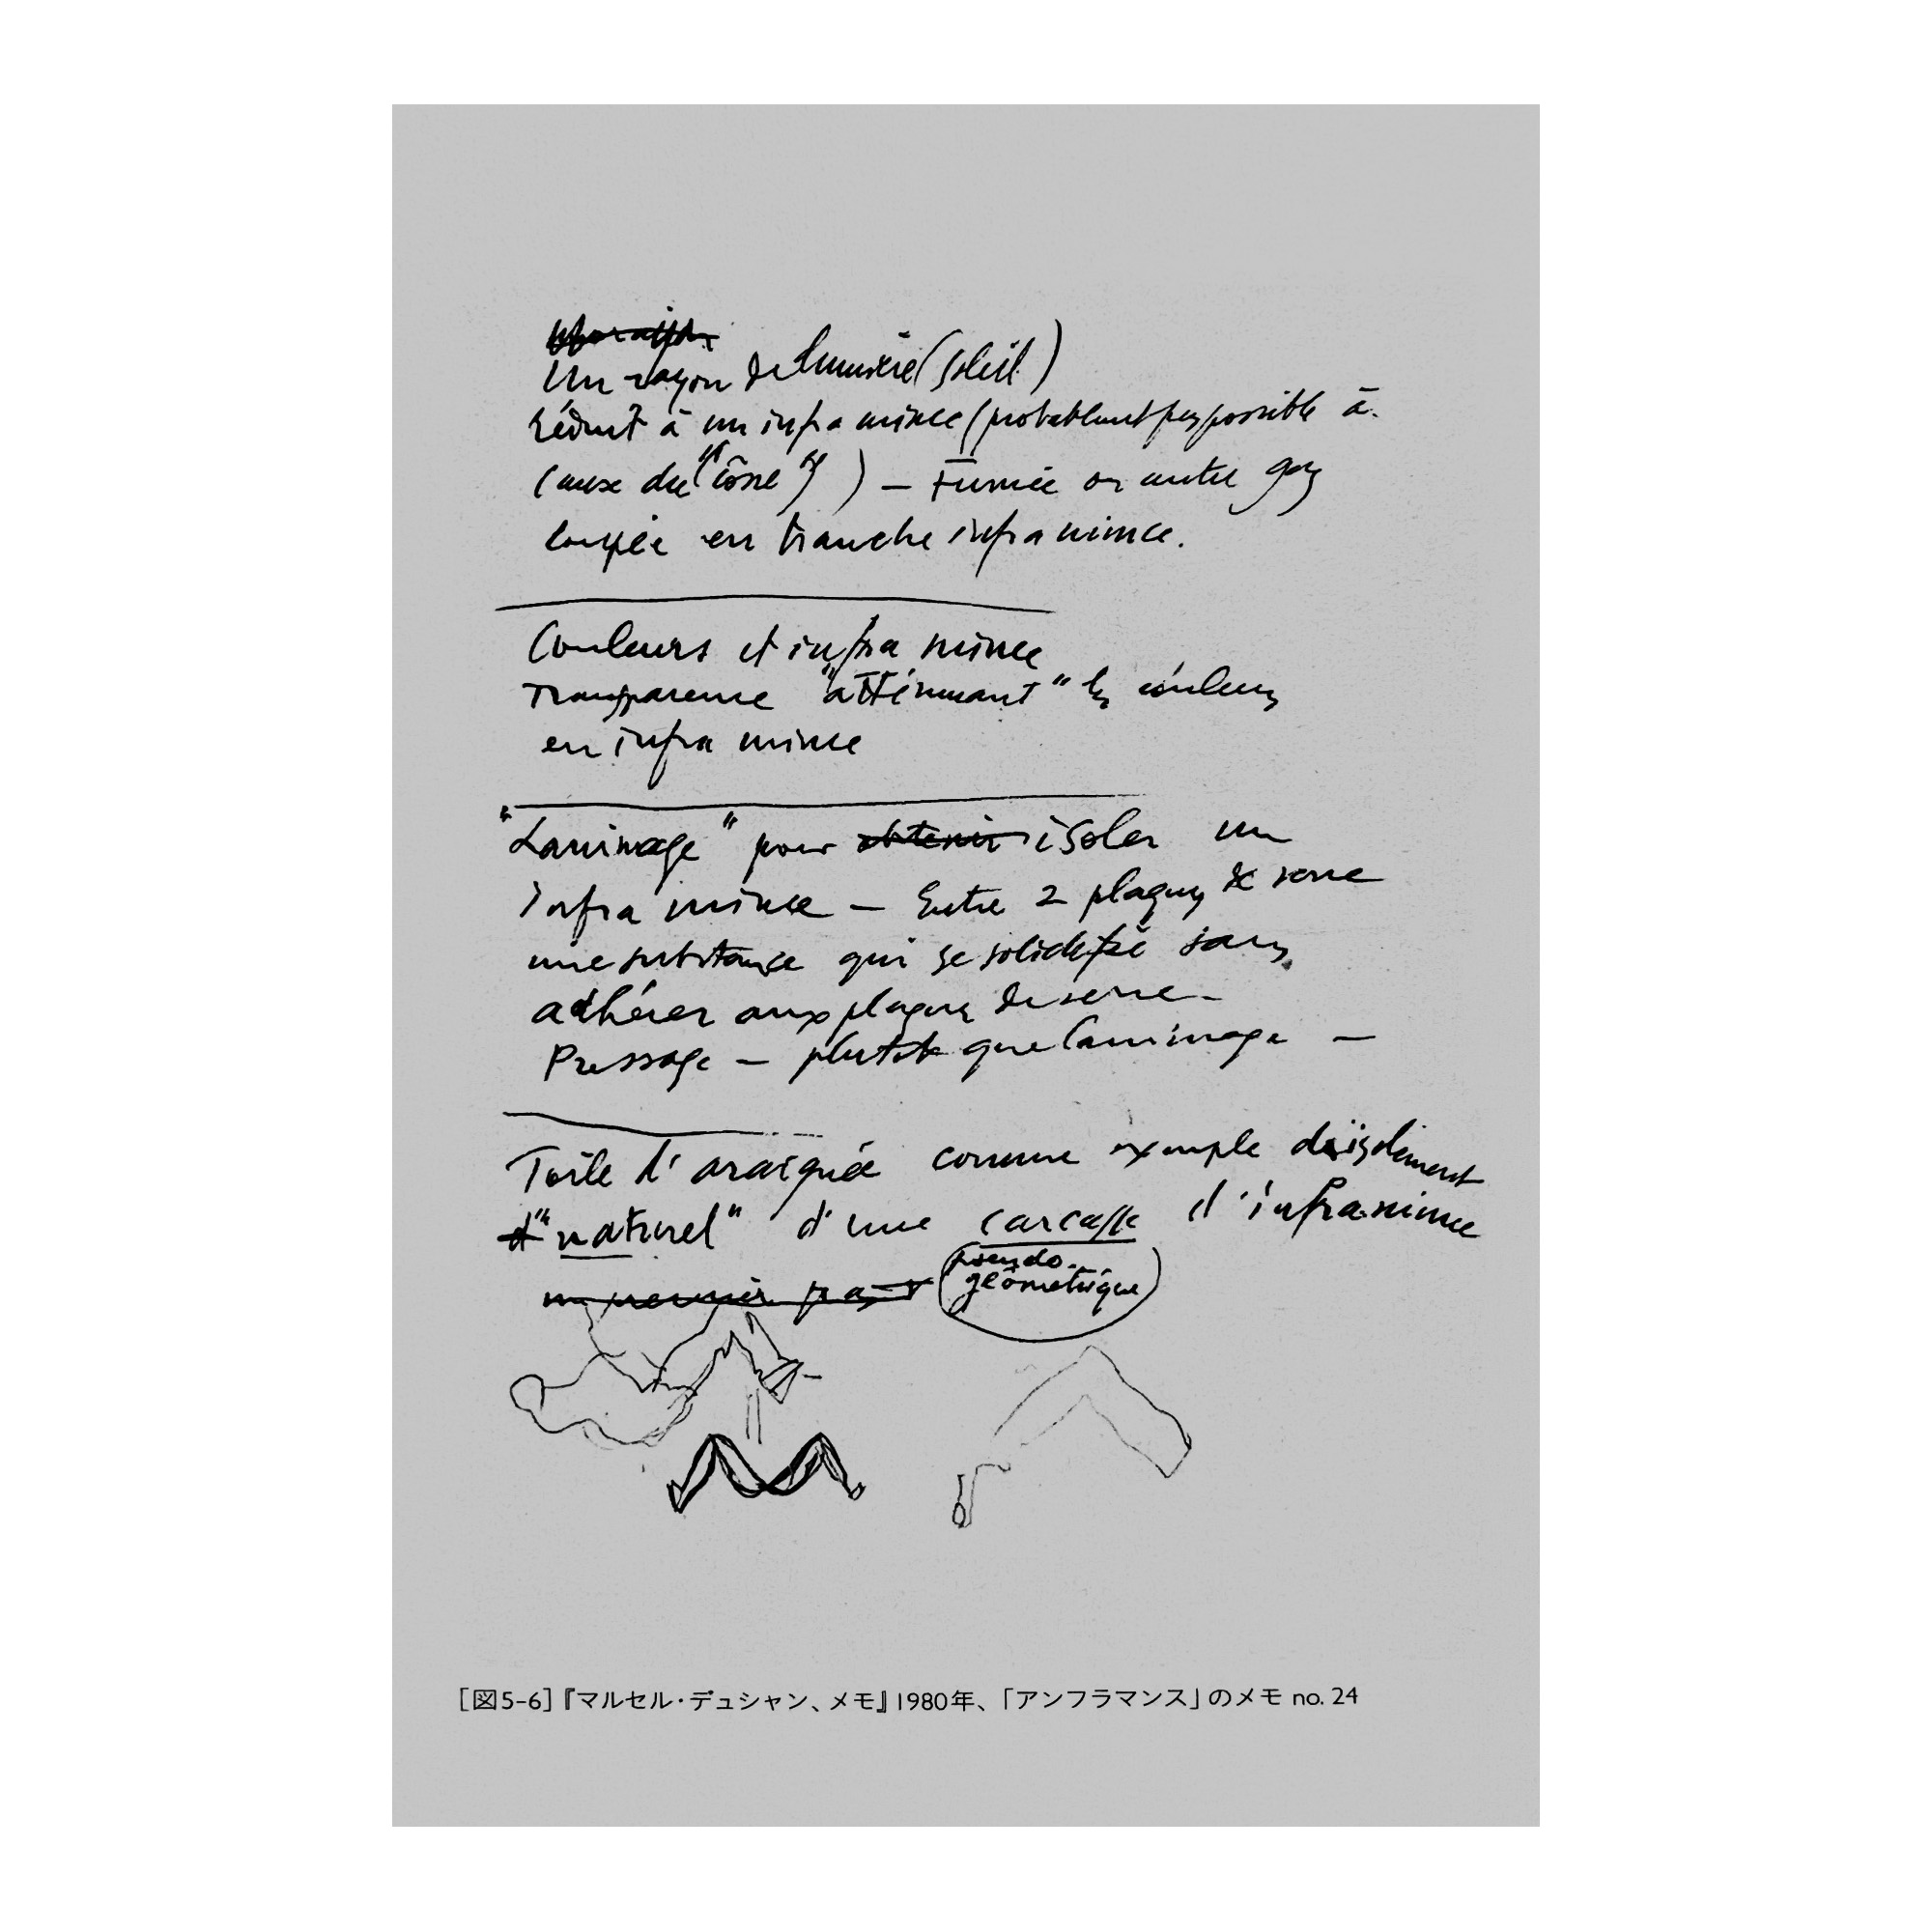 Un rayon de lumière (soleil)
réduit à un infra mince (probablement pas possible à
cause du ("cône") ) — Fumée ou autre gaz
coupée en tranche infra mince.
Couleurs et infra mince
Transparence "atténuant" les couleurs
en infra mince
"Laminage" pour obtenir isoler un
infra mince — Entre 2 plaques de verre
une substance qui se solidifie sans
adhérer aux plaques de verre —
Pressage — plutot que laminage —
Toile d'araignée comme exemple d'isolement
d' "naturel" d'une carcasse d'infra-mince
pseudo-
géométrique
[図5-6]『マルセル・デュシャン、メモ』1980年、「アンフラマンス」のメモ no. 24